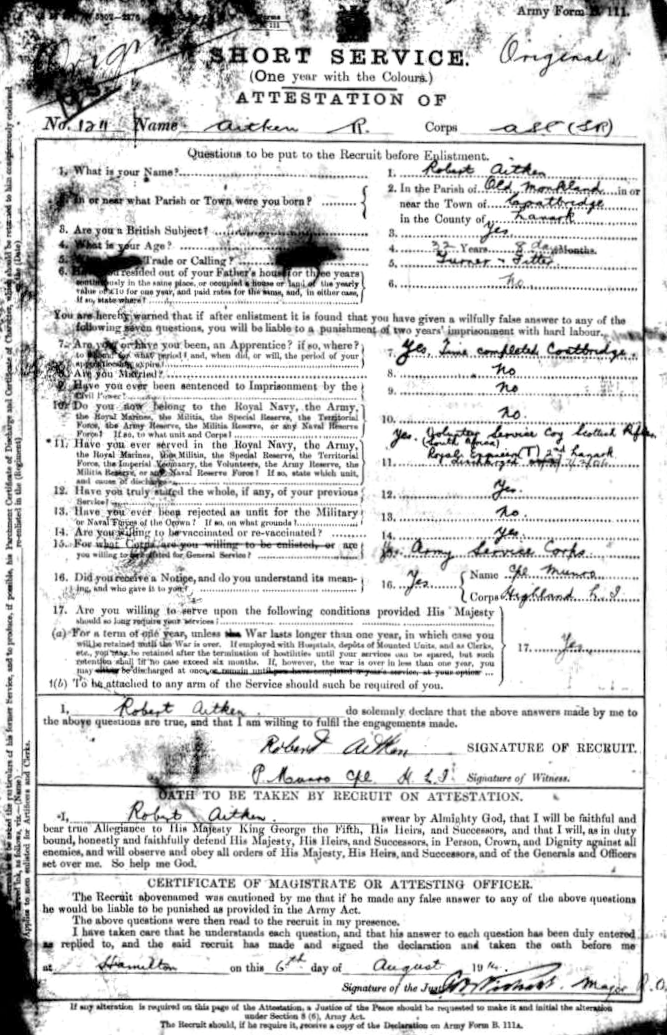 Army Form B. 111.
Original
SHORT SERVICE.
(One year with the Colours.)
ATTESTATION OF
No. 1211 Name Aitken R. Corps ASC (SR)
Questions to be put to the Recruit before Enlistment.
1. What is your Name? 1. Robert Aitken
2. In or near what Parish or Town were you born? 2. In the Parish of Old Monkland in or
near the Town of Coatbridge
in the County of Lanark
3. Are you a British Subject? 3. Yes
4. What is your Age? 4. 32 Years 8 days Months.
5. Trade or Calling? 5. Turner & Fitter
6. resided out of your Father's house for three years
continuously in the same place, or occupied a house or land of the yearly
value of £10 for one year, and paid rates for the same, and, in either case,
If so, state where? 6. No
You are hereby warned that if after enlistment it is found that you have given a wilfully false answer to any of the
following seven questions, you will be liable to a punishment of two years' imprisonment with hard labour.
7. Are you or have you been, an Apprentice? if so, where?
to whom? for what period? and, when did, or will, the period of your
apprenticeship expire? 7. Yes, Time completed Coatbridge.
8. Are you Married? 8. No
9. Have you ever been sentenced to Imprisonment by the
Civil Power? 9. No
10. Do you now belong to the Royal Navy, the Army,
the Royal Marines, the Militia, the Special Reserve, the Territorial
Force, the Army Reserve, the Militia Reserve, or any Naval Reserve
Force? If so, to what unit and Corps? 10. No.
*11. Have you ever served in the Royal Navy, the Army,
the Royal Marines, the Militia, the Special Reserve, the Territorial
Force, the Imperial Yeomanry, the Volunteers, the Army Reserve, the
Militia Reserve, or any Naval Reserve Force? If so, state which unit,
and cause of discharge 11. Yes. Volunteer Service Coy Scottish Rifles
(South Africa)
Royal Engineers (T) 2nd Lanark
12. Have you truly stated the whole, if any, of your previous
Service? 12. Yes.
13. Have you ever been rejected as unfit for the Military
or Naval Forces of the Crown? If so, on what grounds? 13. No.
14. Are you willing to be vaccinated or re-vaccinated? 14. Yes
15. For what Corps are you willing to be enlisted, or are
you willing to be enlisted for General Service? 15. Army Service Corps
16. Did you receive a Notice, and do you understand its mean-
ing, and who gave it to you? 16. Yes. Name Cpl Munro
Corps Highland L. I.
17. Are you willing to serve upon the following conditions provided His Majesty
should so long require your services?
(a) For a term of one year, unless the War lasts longer than one year, in which case you
will be retained until the War is over. If employed with Hospitals, depôts of Mounted Units, and as Clerks,
etc., you may be retained after the termination of hostilities until your services can be spared, but such
retention shall in no case exceed six months. If, however, the war is over in less than one year, you
may be discharged at once, or remain until you have completed a year's service, at your option 17. Yes
†(b) To be attached to any arm of the Service should such be required of you.
I, Robert Aitken. do solemnly declare that the above answers made by me to
the above questions are true, and that I am willing to fulfil the engagements made.
Robert Aitken SIGNATURE OF RECRUIT.
P. Munro Cpl H. L. I. Signature of Witness.
OATH TO BE TAKEN BY RECRUIT ON ATTESTATION.
I, Robert Aitken. swear by Almighty God, that I will be faithful and
bear true Allegiance to His Majesty King George the Fifth, His Heirs, and Successors, and that I will, as in duty
bound, honestly and faithfully defend His Majesty, His Heirs, and Successors, in Person, Crown, and Dignity against all
enemies, and will observe and obey all orders of His Majesty, His Heirs, and Successors, and of the Generals and Officers
set over me. So help me God.
CERTIFICATE OF MAGISTRATE OR ATTESTING OFFICER.
The Recruit abovenamed was cautioned by me that if he made any false answer to any of the above questions
he would be liable to be punished as provided in the Army Act.
The above questions were then read to the recruit in my presence.
I have taken care that he understands each question, and that his answer to each question has been duly entered
as replied to, and the said recruit has made and signed the declaration and taken the oath before me
at Hamilton on this 6th day of August 1914.
Signature of the Justice Major
If any alteration is required on this page of the Attestation, a Justice of the Peace should be requested to make it and initial the alteration
under Section 8 (6), Army Act.
The Recruit should, if he require it, receive a copy of the Declaration on Army Form B. 111A.